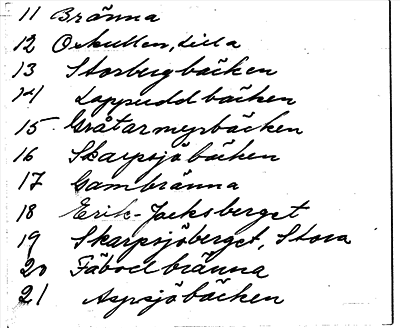 11 Bränna
12 Orkullen, Lilla
13 Storbergbäcken
14 Lappuddbäcken
15 Gråtarmyrbäcken
16 Skarpsjöbäcken
17 Gambränna
18 Erik-Jacksberget
19 Skarpsjöberget, Stora
20 Fäbodbränna
21 Aspsjöbäcken